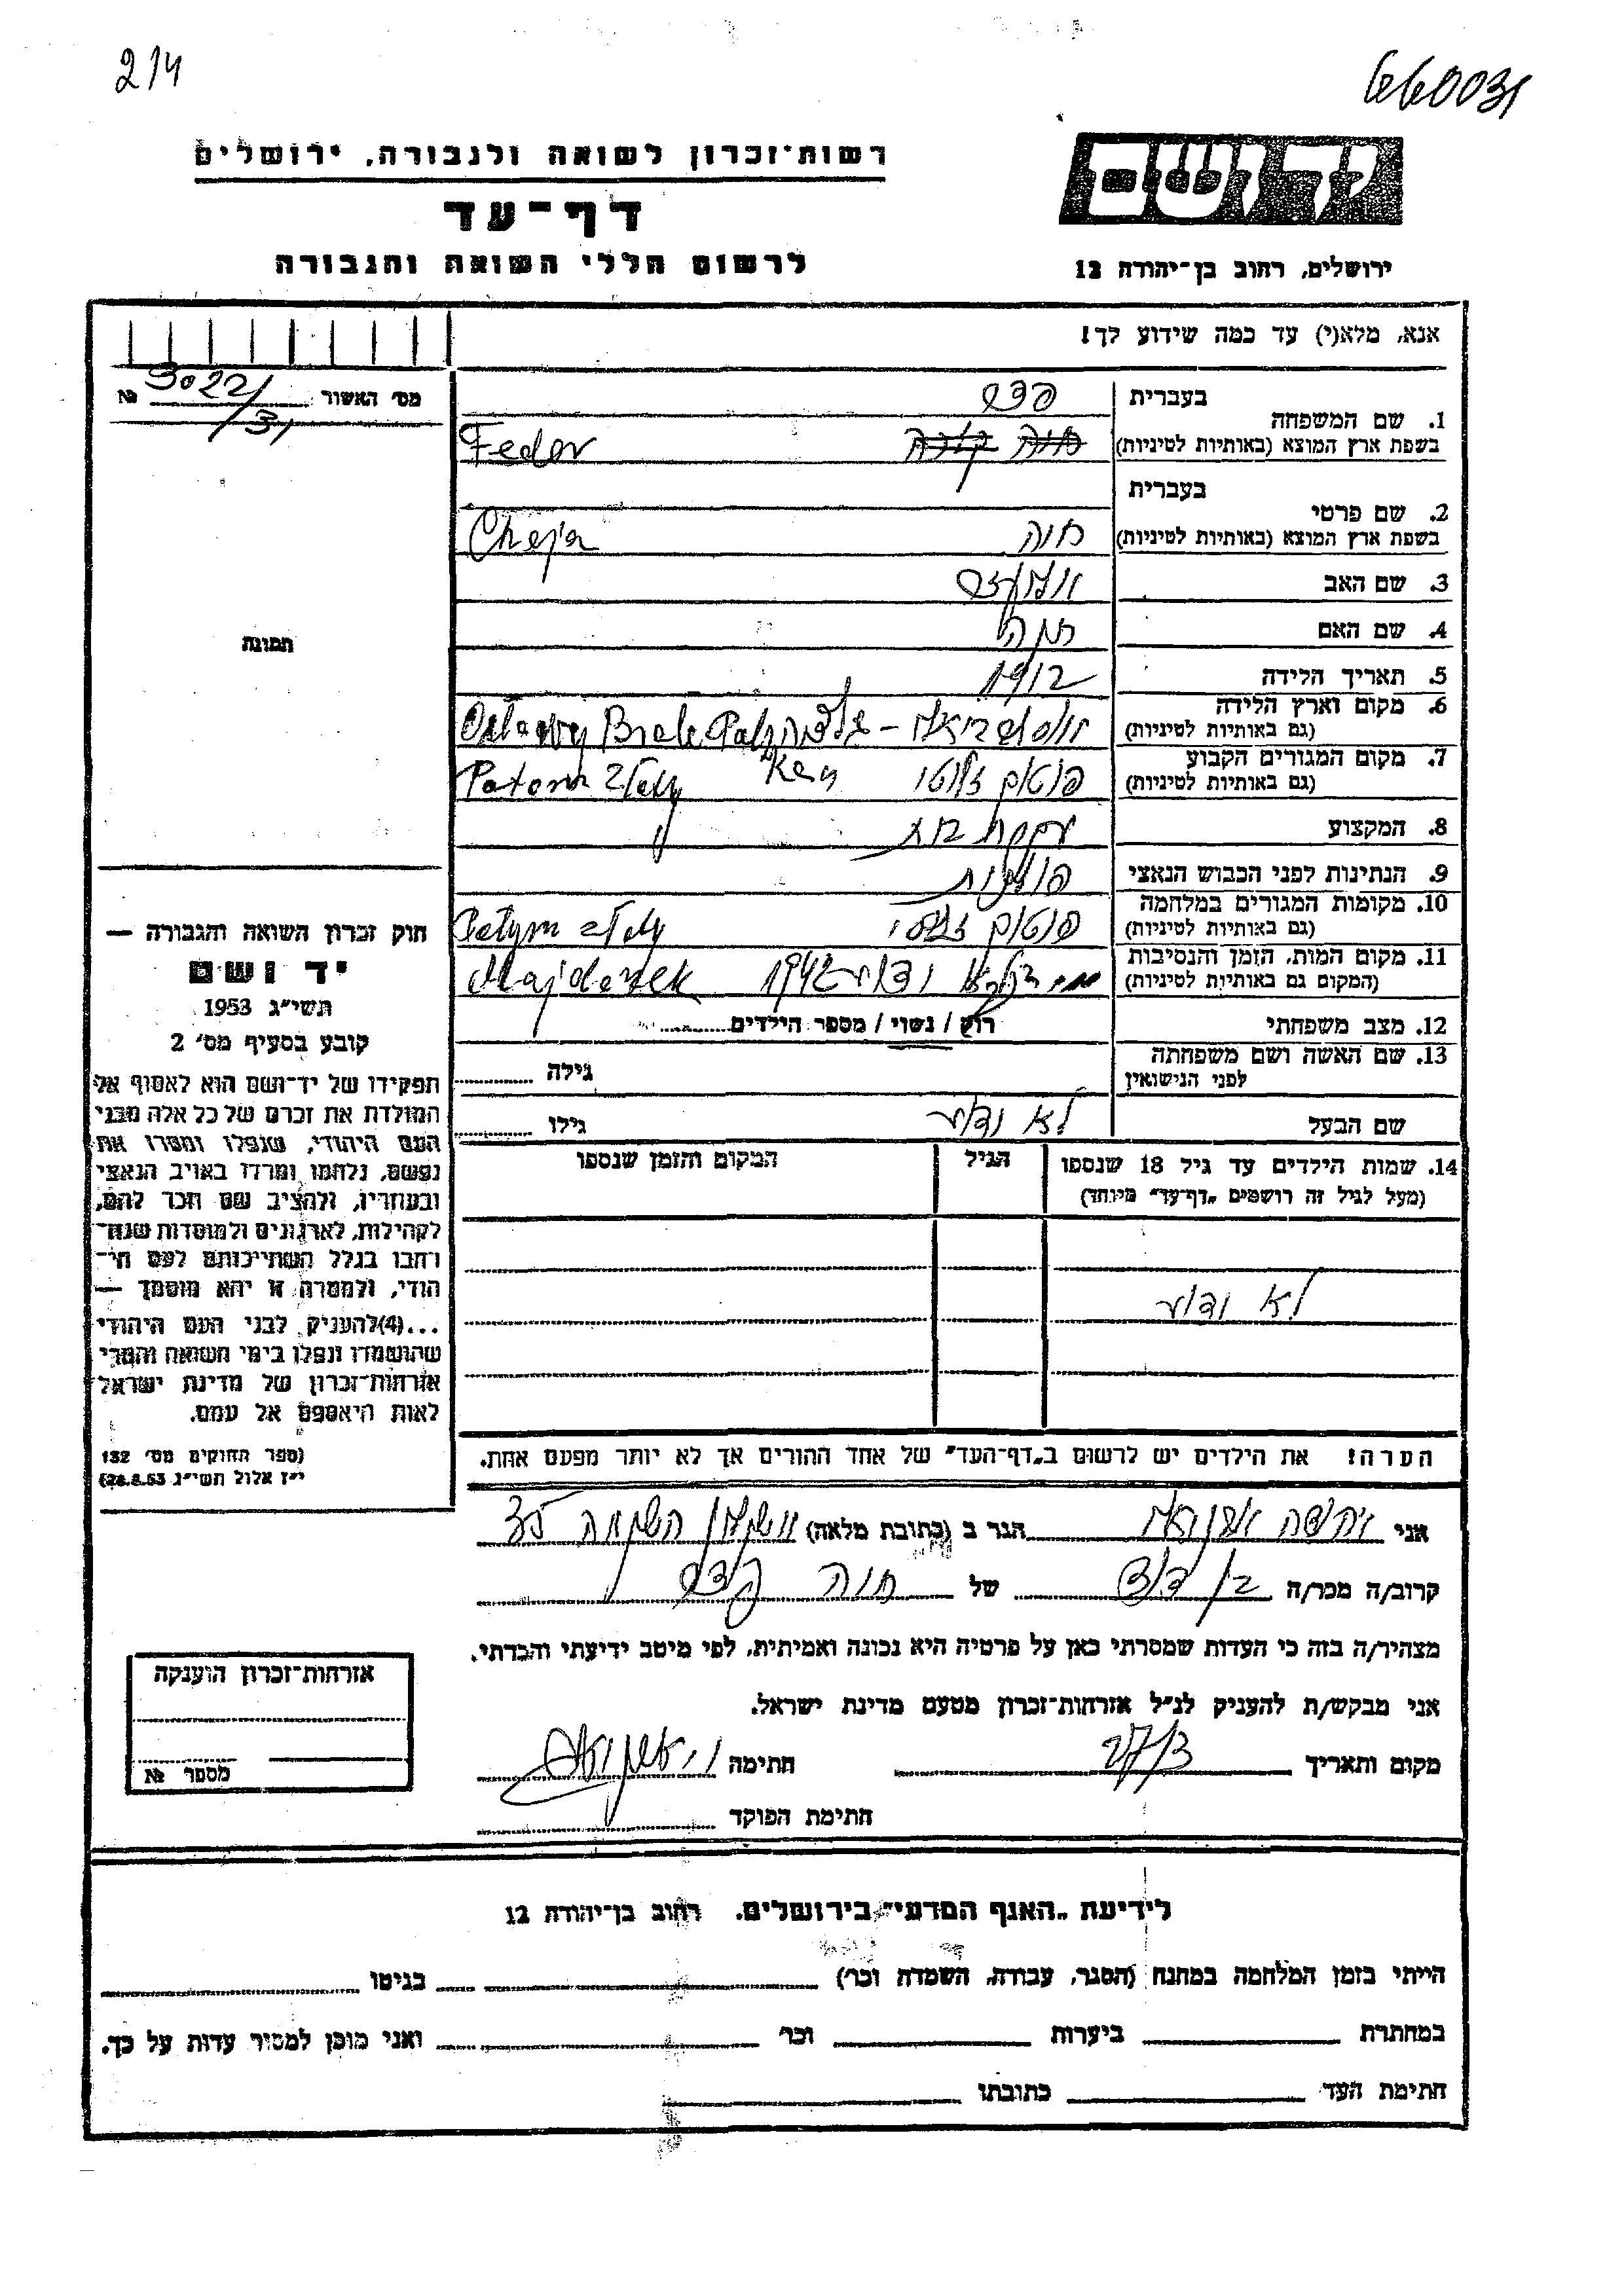 214
660031
רשות־זכרון לשואה ולגבורה, ירושלים
יד ושם
דף־עד
לרשום חללי השואה והגבורה
ירושלים, רחוב בן־יהודה 12
אנא, מלא(י) עד כמה שידוע לך!
מס׳ האשור № 3022/31
1. שם המשפחה
בעברית
בשפת ארץ המוצא (באותיות לטיניות) Fedor
2. שם פרטי
בעברית
בשפת ארץ המוצא (באותיות לטיניות) חוה Chaja
3. שם האב
4. שם האם
5. תאריך הלידה 1912
6. מקום וארץ הלידה
(גם באותיות לטיניות)
7. מקום המגורים הקבוע
(גם באותיות לטיניות) פוטוק זלוטי
8. המקצוע עקרת בית
9. הנתינות לפני הכבוש הנאצי פולנית
10. מקומות המגורים במלחמה
(גם באותיות לטיניות) פוטוק זלוטי
11. מקום המות, הזמן והנסיבות
(המקום גם באותיות לטיניות) 1942 Majdanek
12. מצב משפחתי רוק / נשוי / מספר הילדים
13. שם האשה ושם משפחתה
לפני הנישואין גילה
שם הבעל לא ידוע גילו
14. שמות הילדים עד גיל 18 שנספו
(מעל לגיל זה רושמים „דף־עד” מיוחד)
הגיל
המקום והזמן שנספו
לא ידוע
הערה! את הילדים יש לרשום ב„דף־העד” של אחד ההורים אך לא יותר מפעם אחת.
תמונה
חוק זכרון השואה והגבורה —
יד ושם
תשי״ג 1953
קובע בסעיף מס׳ 2
תפקידו של יד־ושם הוא לאסוף אל
המולדת את זכרם של כל אלה מבני
העם היהודי, שנפלו ומסרו את
נפשם, נלחמו ומרדו באויב הנאצי
ובעוזריו, ולהציב שם וזכר להם,
לקהילות, לארגונים ולמוסדות שנח־
רבו בגלל השתייכותם לעם הי־
הודי, ולמטרה זו יהא מוסמך —
...(4)להעניק לבני העם היהודי
שהושמדו ונפלו בימי השואה והמרי
אזרחות־זכרון של מדינת ישראל
לאות היאספם אל עמם.
(ספר החוקים מס׳ 132
י״ז אלול תשי״ג 28.8.53)
אני הגר ב (כתובת מלאה)
קרוב/ה מכר/ה בן דוד של חוה פדר
מצהיר/ה בזה כי העדות שמסרתי כאן על פרטיה היא נכונה ואמיתית, לפי מיטב ידיעתי והכרתי.
אני מבקש/ת להעניק לנ״ל אזרחות־זכרון מטעם מדינת ישראל.
מקום ותאריך חתימה
חתימת הפוקד
אזרחות־זכרון הוענקה
מספר №
לידיעת „האגף המדעי” בירושלים. רחוב בן־יהודה 12
הייתי בזמן המלחמה במחנה (הסגר, עבודה, השמדה וכר׳) בגיטו
במחתרת ביערות וכר׳ ואני מוכן למסור עדות על כך.
חתימת העד כתובתו